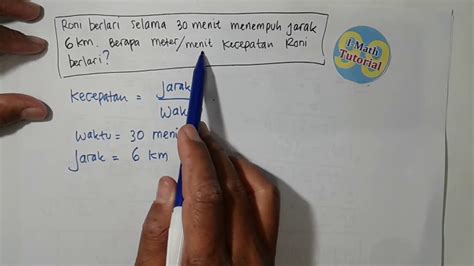 Roni berlari selama 30 menit menempuh jarak
6 km. Berapa meter/menit kecepatan Roni
berlari?
I Math
Tutorial
Kecepatan = Jarak
Wak
Waktu = 30 meni
Jarak = 6 km